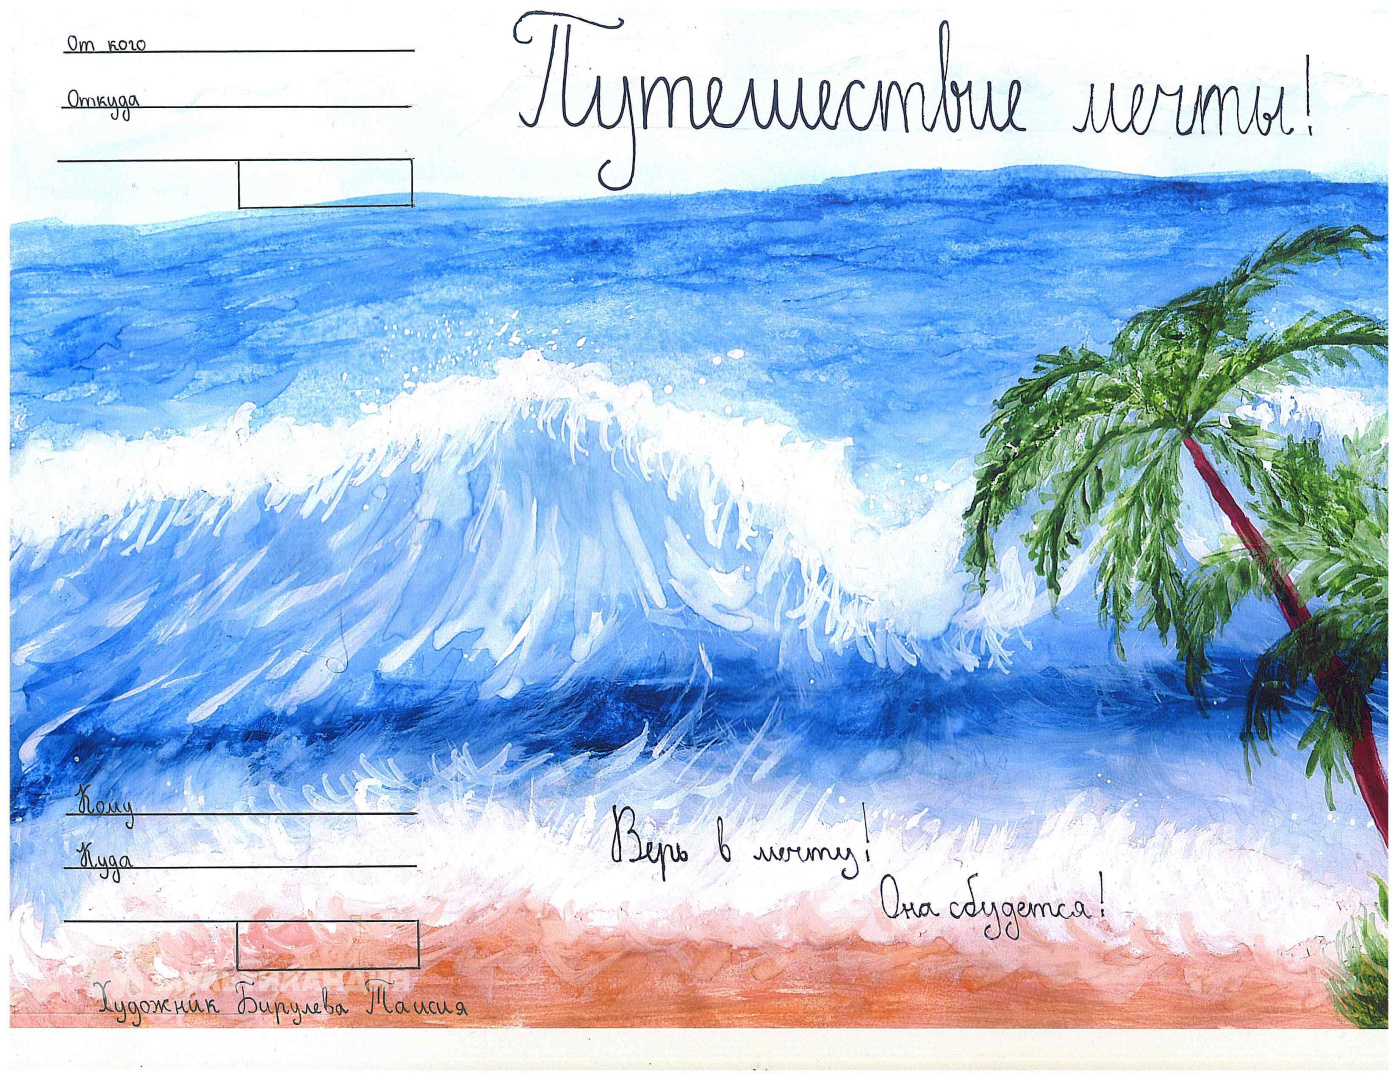 От кого
Откуда
Путешествие мечты!
Кому
Куда
Верь в мечту!
Она сбудется!
Художник Бирулева Таисия